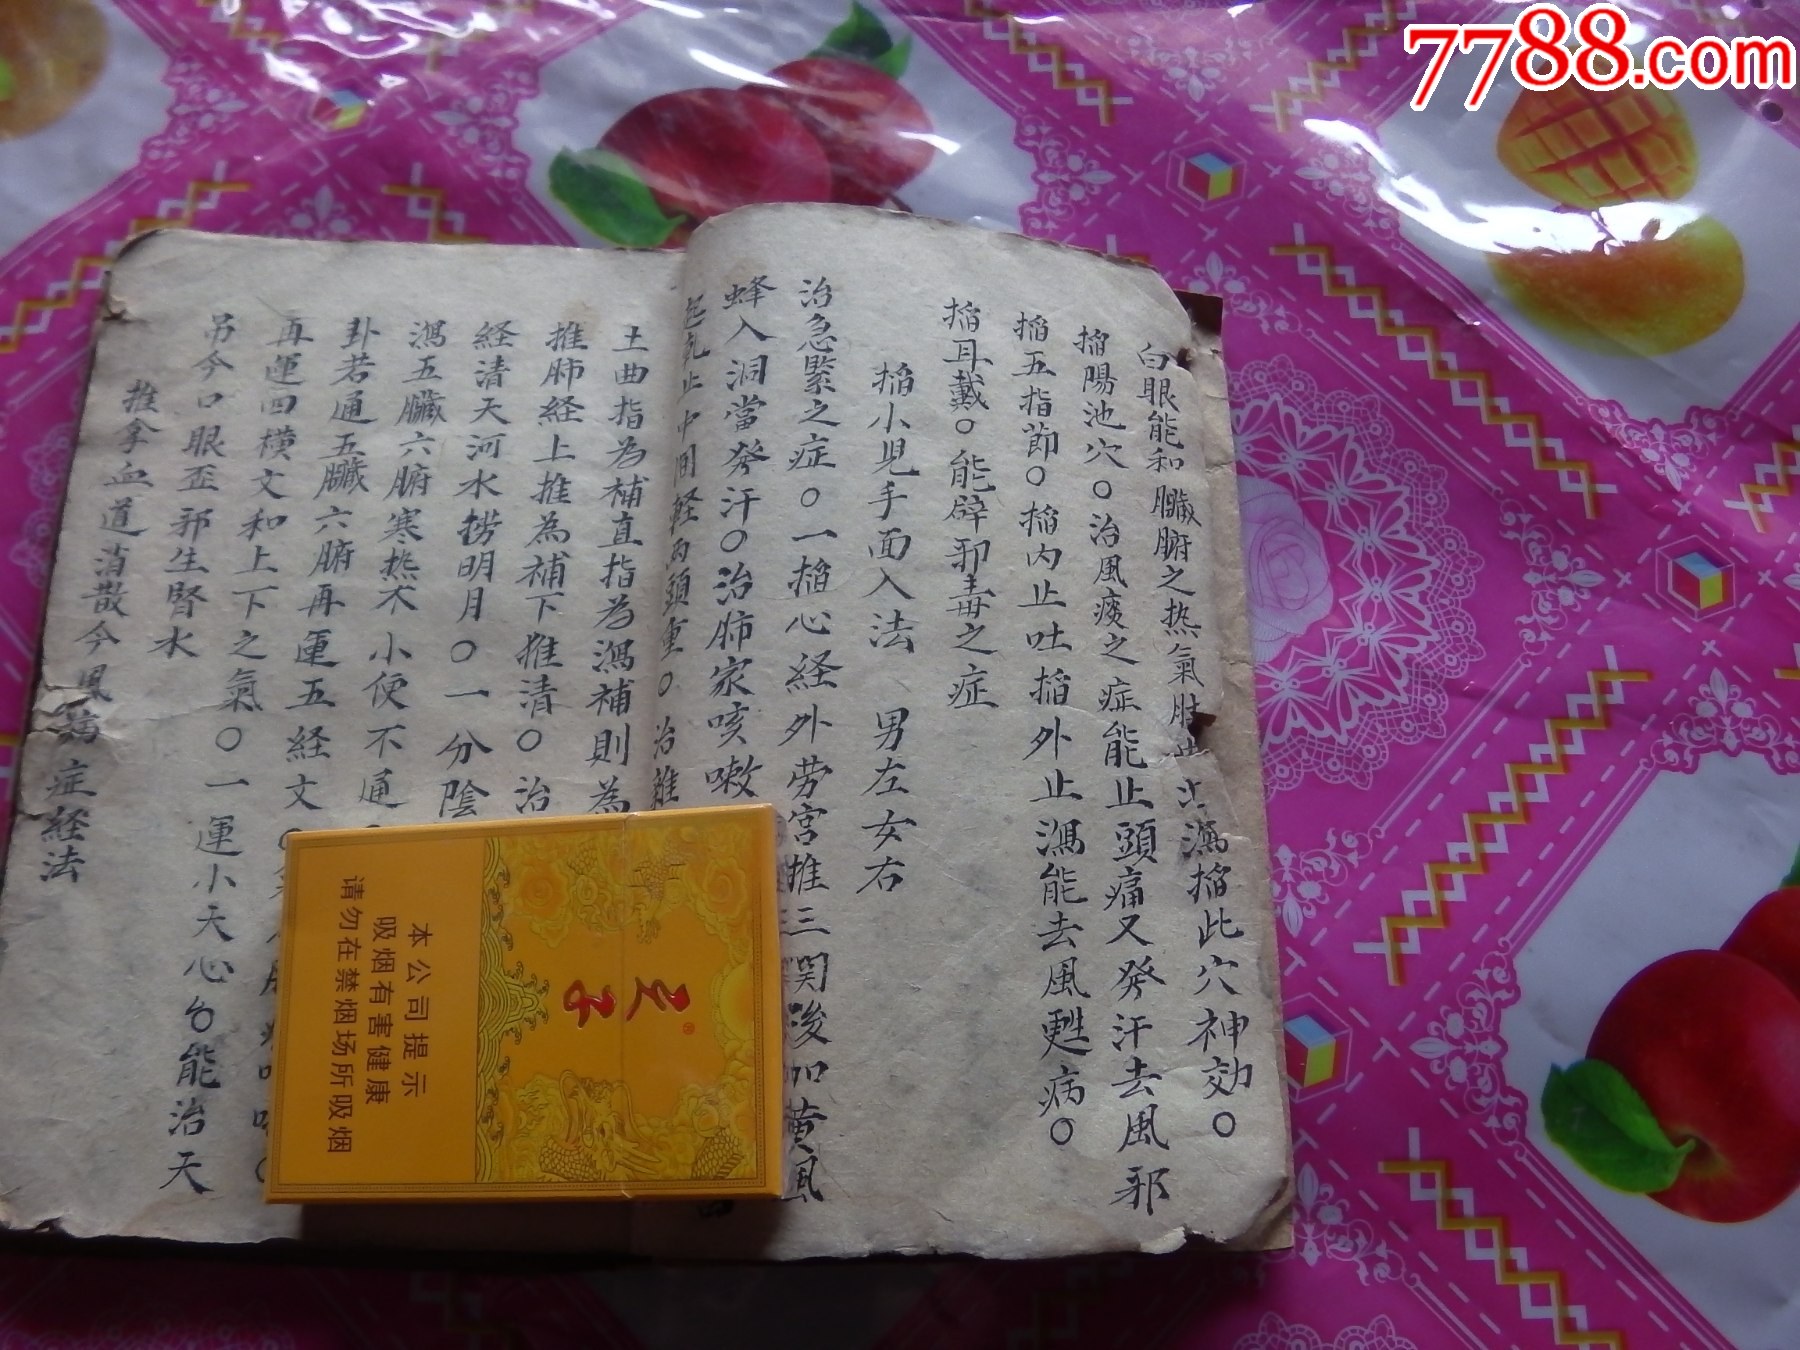 7788.com
白眼能和臟腑之热氣肚
止瀉搯此穴神効〇
搯陽池穴〇治風痰之症能止頭痛又發汗去風邪
搯五指節〇搯内止吐搯外止瀉能去風甦病〇
搯耳戴〇能辟邪毒之症
搯小児手面入法 男左女右
治急緊之症〇一搯心経外劳宮推三関後加黄風
蜂入洞當發汗〇治肺家咳嗽
起乩止中间軽两頭重〇治雜
土曲指為補直指為瀉補則為
推肺経上推為補下推清〇治
経清天河水捞明月〇一分陰
瀉五臟六腑寒热不小便不通
卦若通五臟六腑再運五経文
再運四横文和上下之氣〇一運小天心〇能治天
吊今口眼歪邪生腎水
推拿血道消散今風病症経法
本公司提示
吸烟有害健康
请勿在禁烟场所吸烟